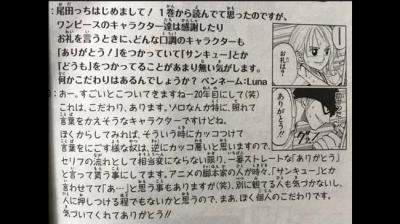 ：尾田っちはじめまして！ 1巻から読んでて思ったのですが、
ワンピースのキャラクター達は感謝したり
お礼を言うときに、どんな口調のキャラクターも
「ありがとう！」をつかっていて「サンキュー」とか
「どうも」をつかってることがあまり無い気がします。
何かこだわりはあるんでしょうか？ ペンネーム：Luna
：おー。すごいとこついてきますねー20年目にして(笑)
これは、こだわり、あります。ゾロなんか特に、照れて
言葉をかえそうなキャラクターですけどね。
ぼくからしてみれば、そういう時にカッコつけて
言葉をにごす様な奴は、逆にカッコ悪いと思いますので、
セリフの流れとして相当変にならない限り、一番ストレートな「ありがとう」
と言って貰う事にしてます。アニメの脚本家の人が時々、「サンキュー」とか
言わせてて「あ…」と思う事もありますが(笑)、別に観てる人も気づかないし、
人に押しつける程でもないかと思うので。まあ、ぼく個人のこだわりです。
気づいてくれてありがとう!!
お礼は？
ありがとう!!